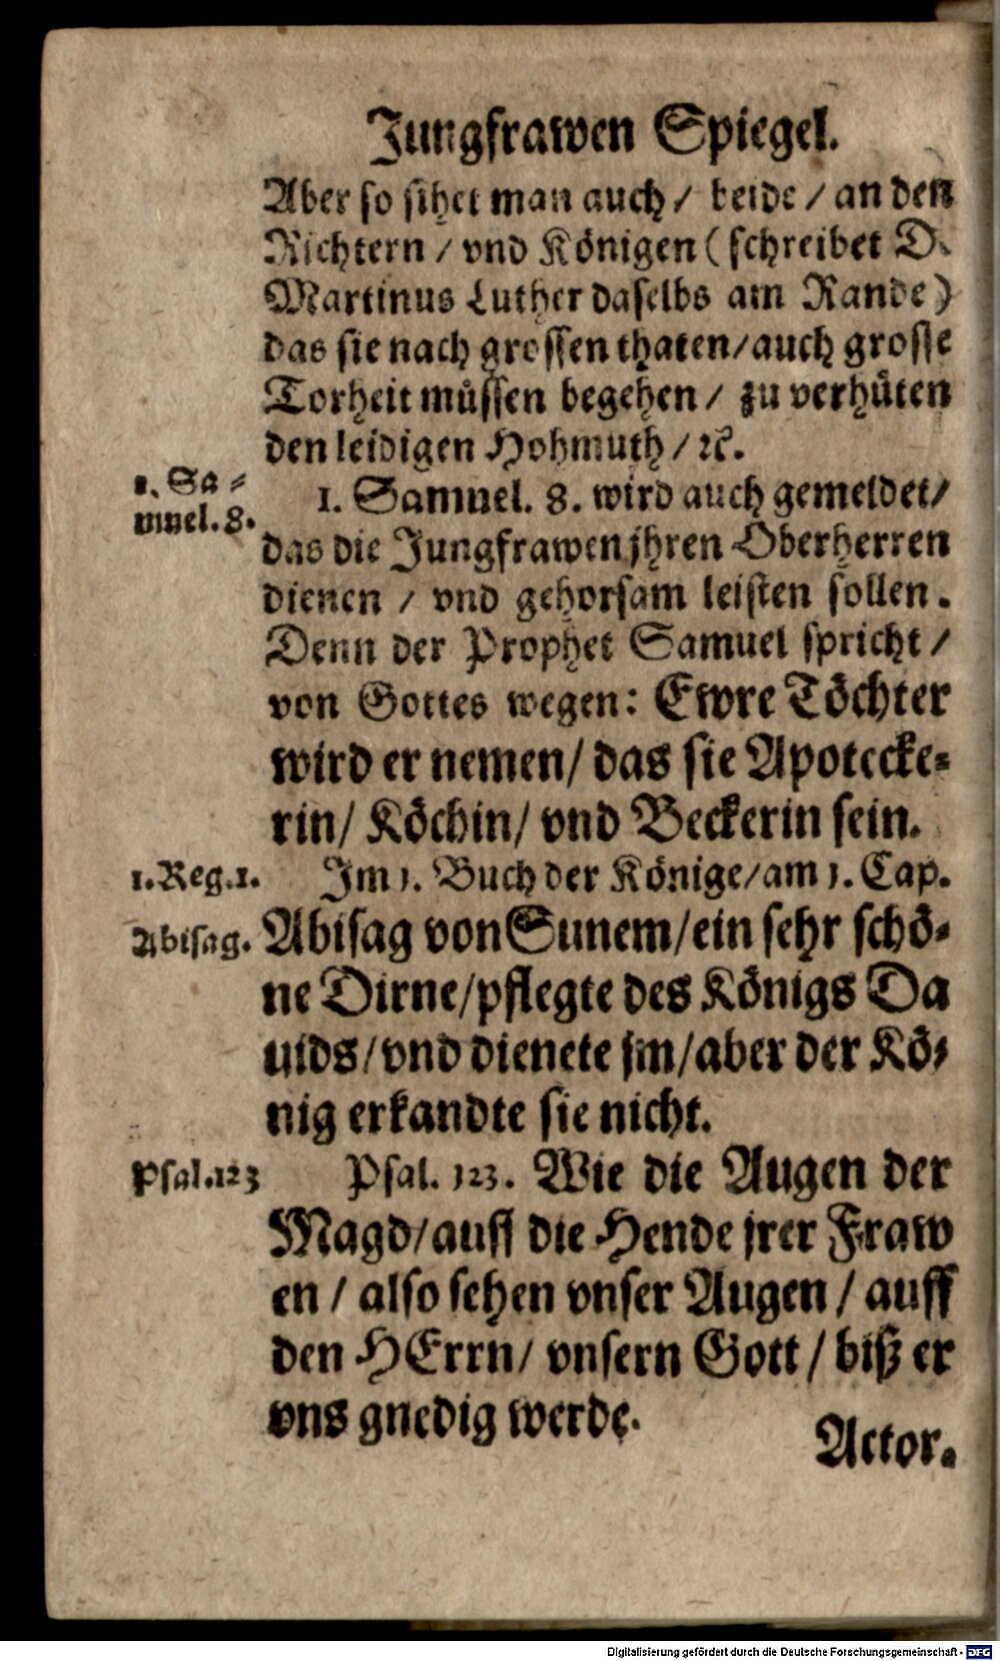 Jungfrawen Spiegel.
Aber so sihet man auch / beide / an den
Richtern / vnd Königen (schreibet D.
Martinus Luther daselbs am Rande)
das sie nach grossen thaten/auch grosse
Torheit müssen begehen / zu verhüten
den leidigen Hohmuth / ꝛc.
1. Sa-
muel.8.
1. Samuel. 8. wird auch gemeldet/
das die Jungfrawen jhren Oberherren
dienen / vnd gehorsam leisten sollen.
Denn der Prophet Samuel spricht /
von Gottes wegen: Ewre Töchter
wird er nemen/ das sie Apotecke-
rin/ Köchin/ vnd Beckerin sein.
1.Reg.1.
Im 1. Buch der Könige/am 1. Cap.
Abisag.
Abisag von Sunem/ein sehr schö-
ne Dirne/pflegte des Königs Da
uids/vnd dienete jm/aber der Kö-
nig erkandte sie nicht.
Psal.123
Psal. 123. Wie die Augen der
Magd/auff die Hende jrer Fraw
en / also sehen vnser Augen / auff
den HErrn/ vnsern Gott / biß er
vns gnedig werde.
Actor.
Digitalisierung gefördert durch die Deutsche Forschungsgemeinschaft - DFG